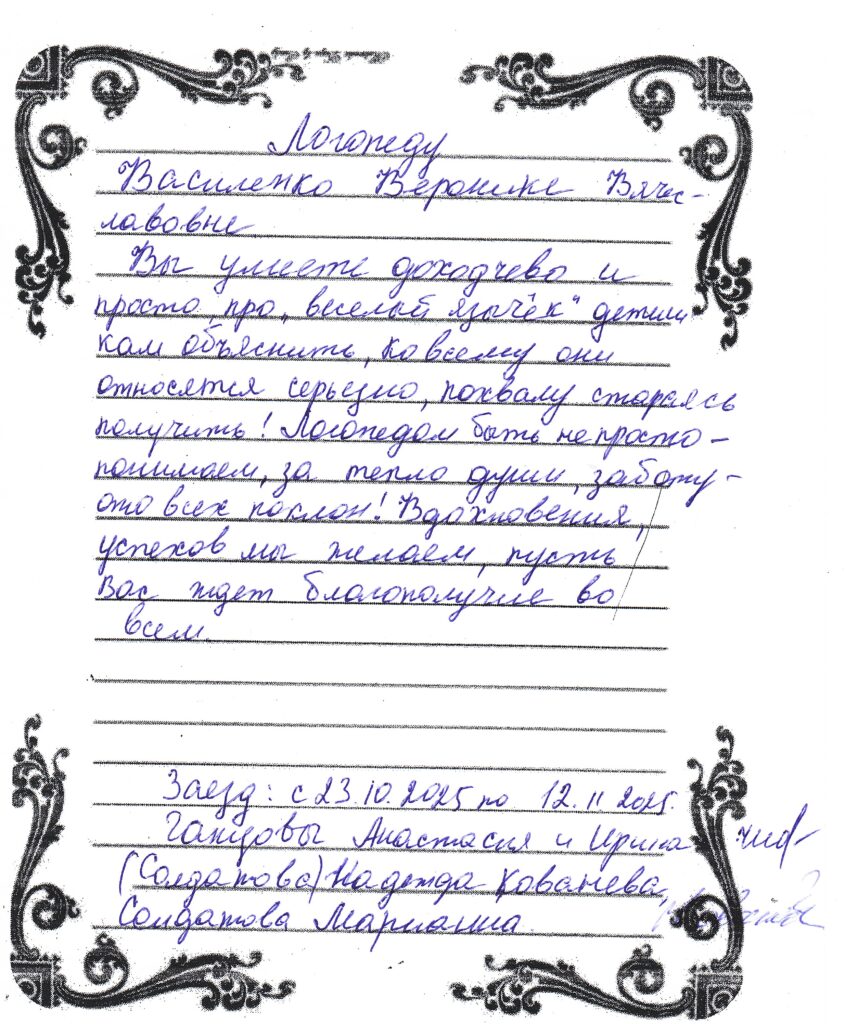 Логопеду
Василенко Веронике Вячес-
лавовне
Вы умеете доходчево и
просто, про „веселый язычёк" детиш
кам объяснить, ко всему они
относятся серьезно, похвалу стараясь
получить! Логопедом быть не просто-
понимаем, за тепло души, заботу-
ото всех поклон! Вдохновения,
успехов мы желаем, пусть
Вас ждет благополучие во
всем.
Заезд: с 23.10.2025 по 12.11.2025.
Ганцовы Анастасия и Ирина
(Солдатова) Надежда Кованева,
Солдатова Марианна